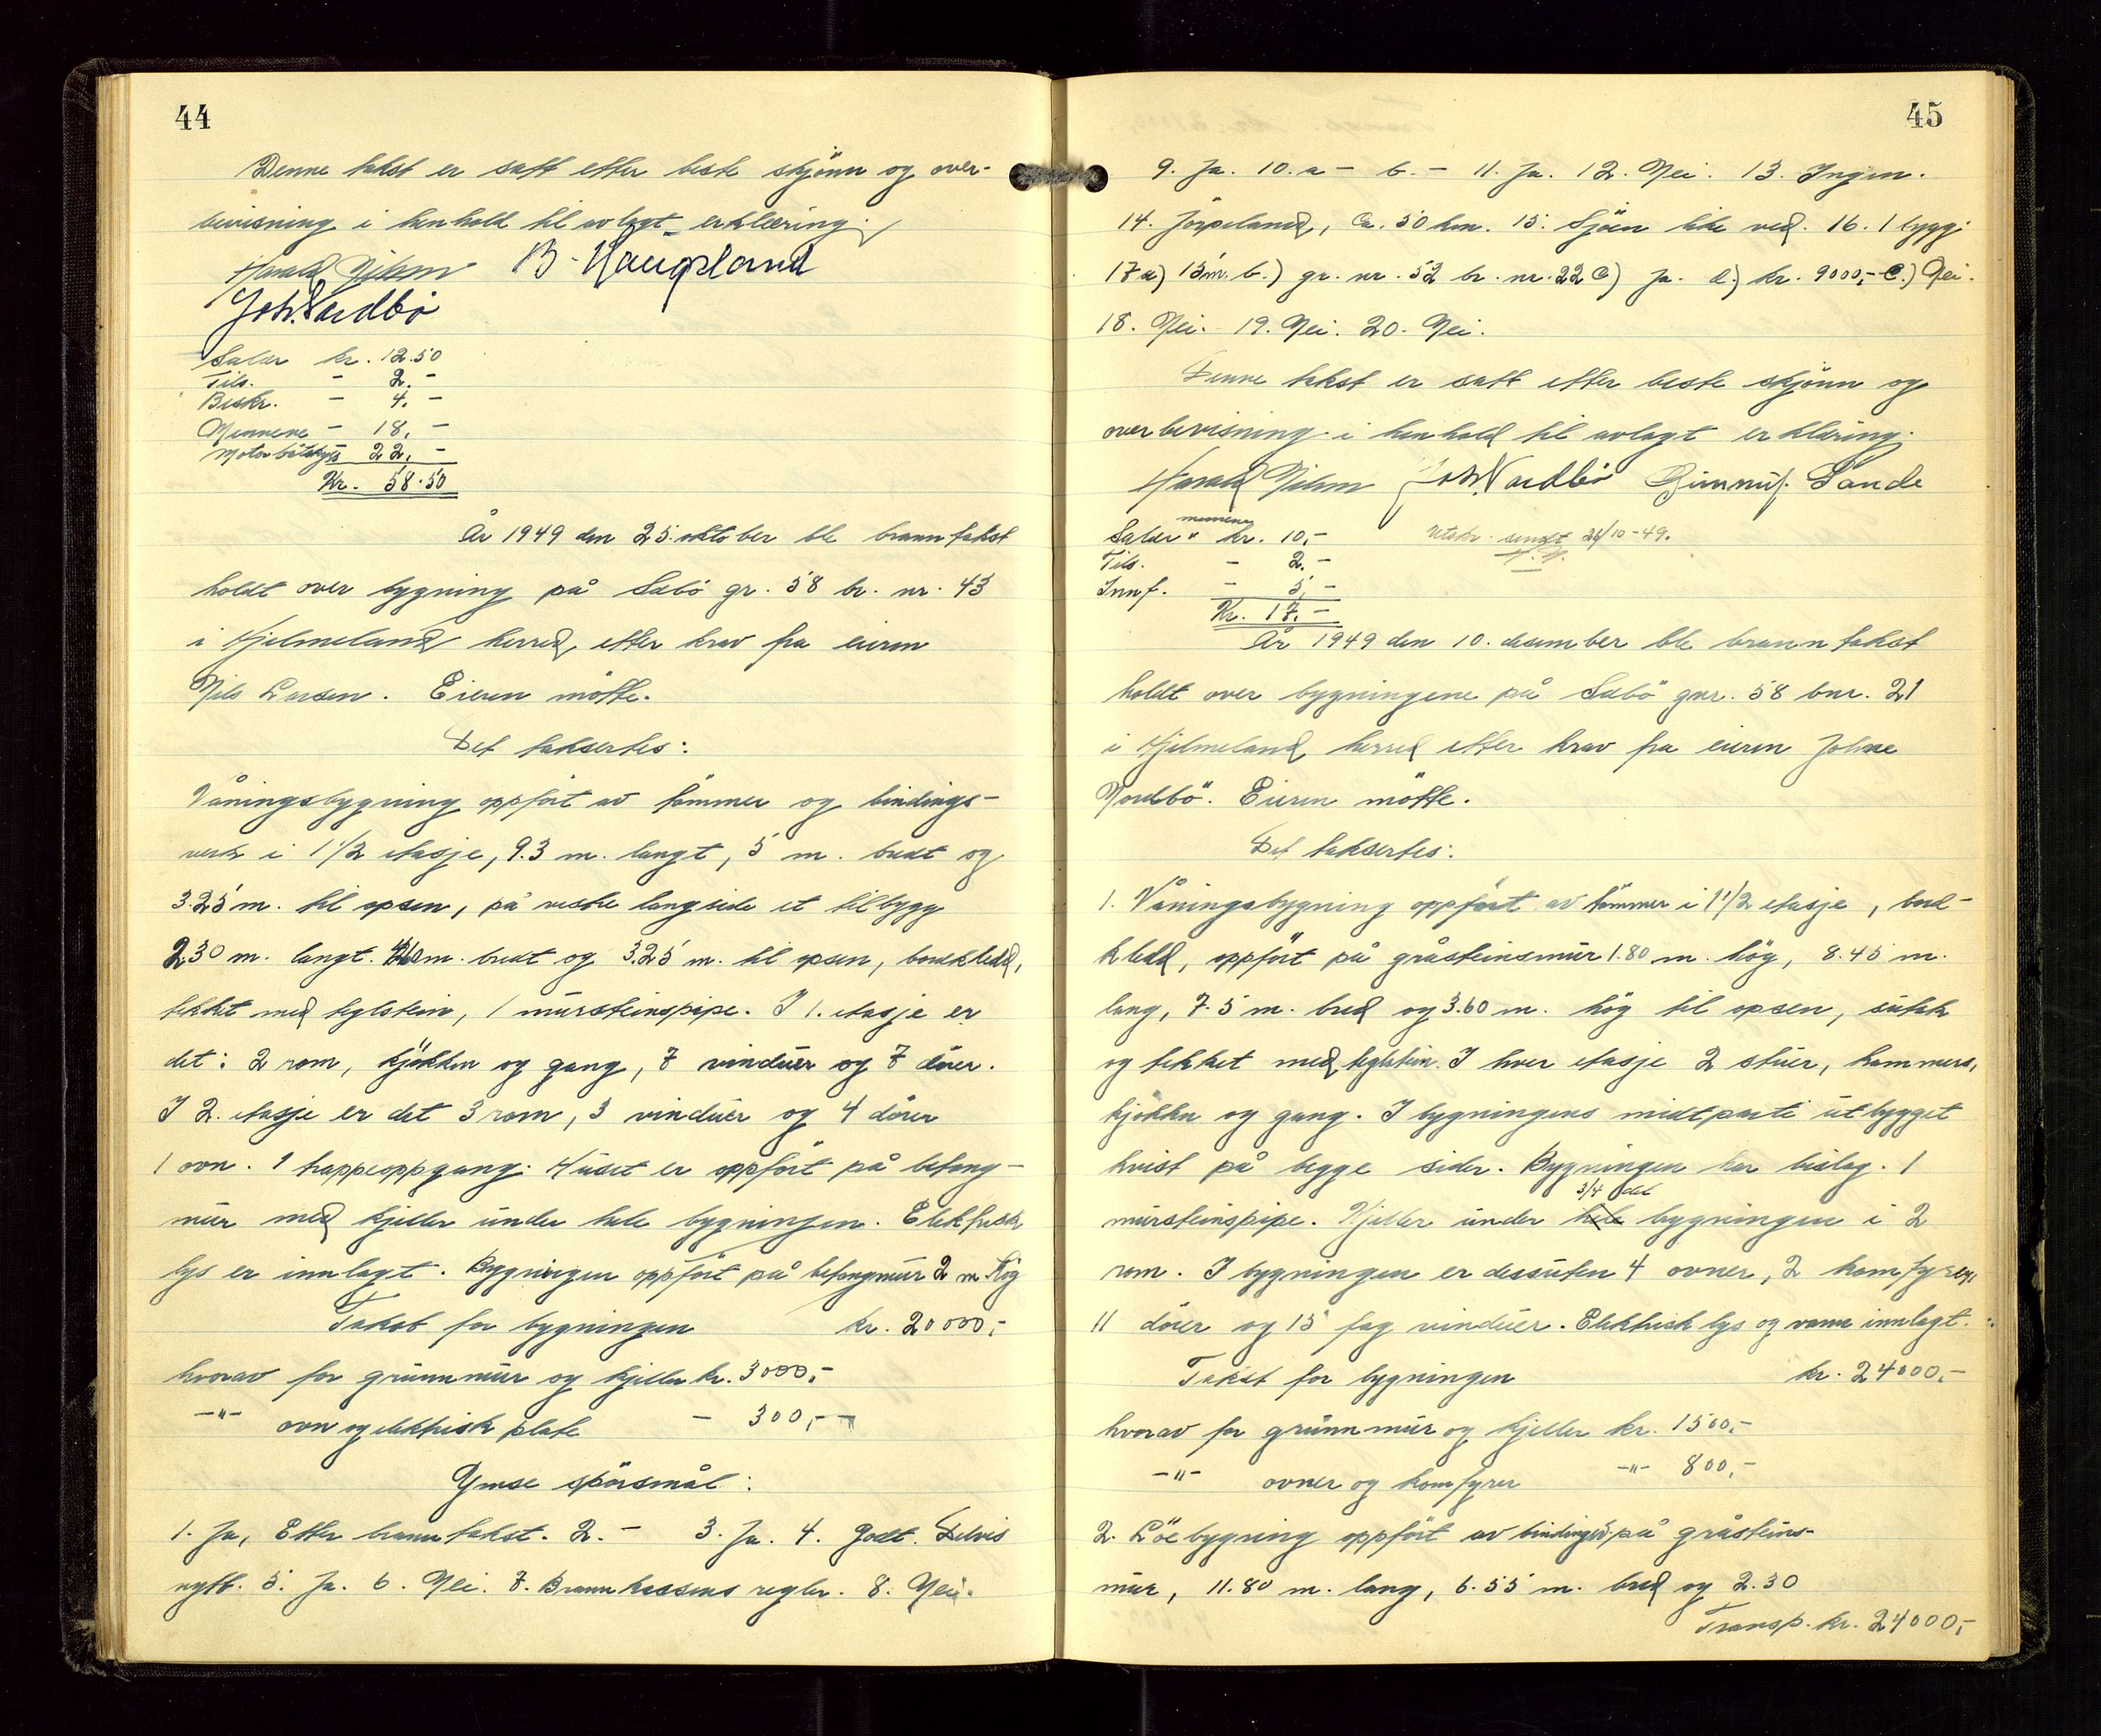 44
Denne takst er satt etter beste skjönn og over-
bevisning i henhold til avlagt erklæring.
Harald Nilsen B. Haugeland
Joh. Nordbö
Salær kr. 12.50
Tils. - 2.-
Beskr. - 4.-
Mennene - 18.-
Motorbåtskyss 22.-
Kr. 58.50
År 1949 den 25. oktober ble branntakst
holdt over bygning på Sæbö gr. 58 br. nr. 43
i Hjelmeland herred, etter krav fra eieren
Nils Larsen. Eieren mötte.
Det taksertes:
Våningsbygning oppfört av tömmer og bindings-
verk i 1 1/2 etasje, 9.3 m. langt, 5 m. bredt og
3.25 m. til opsen, på vestre langside et tilbygg
2.30 m. langt. m. bredt og 3.25 m. til opsen, bordkledd,
tekket med teglstein, 1 mursteinspipe. I 1. etasje er
det: 2 rom, kjökken og gang, 7 vinduer og 7 dörer.
I 2. etasje er det 3 rom, 3 vinduer og 4 dörer
1 ovn. 1 trappeoppgang. Huset er oppfört på betong-
mur med kjeller under hele bygningen. Elektrisk
lys er innlagt. Bygningen oppfört på betongmur 2 m hög
Takst for bygningen kr. 20000,-
hvorav for grunnmur og kjeller kr. 3000,-
-"- ovn og elektrisk plate - 300,-
Ymse spörsmål:
1. Ja, Etter branntakst. 2. - 3. Ja. 4. Godt. Delvis
nytt. 5. Ja. 6. Nei. 7. Brannkassens regler. 8. Nei.
45
9. Ja. 10. a - b. - 11. Ja. 12. Nei. 13. Ingen.
14. Jörpeland, Ca. 50 km. 15. Sjöen like ved. 16. 1 bygg.
17 a) 15m. b.) gr. nr. 52 br. nr. 22 c) Ja. d.) kr. 9000,- e.) Nei.
18. Nei. 19. Nei. 20. Nei.
Denne takst er satt etter beste skjönn og
overbevisning i henhold til avlagt erklæring.
Harald Nilsen Joh. Nordbö Sande
mennene
Salær " kr. 10,- Utskr. sendt 26/10-49.
Tils. - 2.-
Innf. - 5,-
Kr. 17.-
År 1949 den 10. desember ble branntakst
holdt over bygningene på Sæbö gnr. 58 bnr. 21
i Hjelmeland herred etter krav fra eieren Johne
Nordbö. Eieren mötte.
Det taksertes:
1. Våningsbygning oppfört av tömmer i 1 1/2 etasje, bord-
kledd, oppfört på gråsteinsmur 1.80 m. hög, 8.45 m.
lang, 7.5 m. bred og 3.60 m. hög til opsen, sutak
og tekket med teglstein. I hver etasje 2 stuer, kammers,
kjökken og gang. I bygningens midtparti utbygget
kvist på begge sider. Bygningen har bislag. 1
3/4 del
mursteinspipe. Kjeller under hele bygningen i 2
rom. I bygningen er dessuten 4 ovner, 2 komfyrer,
11 dörer og 15 fag vinduer. Elektrisk lys og vann innlagt.
Takst for bygningen kr. 24000,-
hvorav for grunnmur og kjeller kr. 1500,-
-"- ovner og komfyrer -"- 800,-
2. Löebygning oppfört av bindingsv. på gråsteins-
mur, 11.80 m. lang, 6.55 m. bred og 2.30
Transp. kr. 24000,-